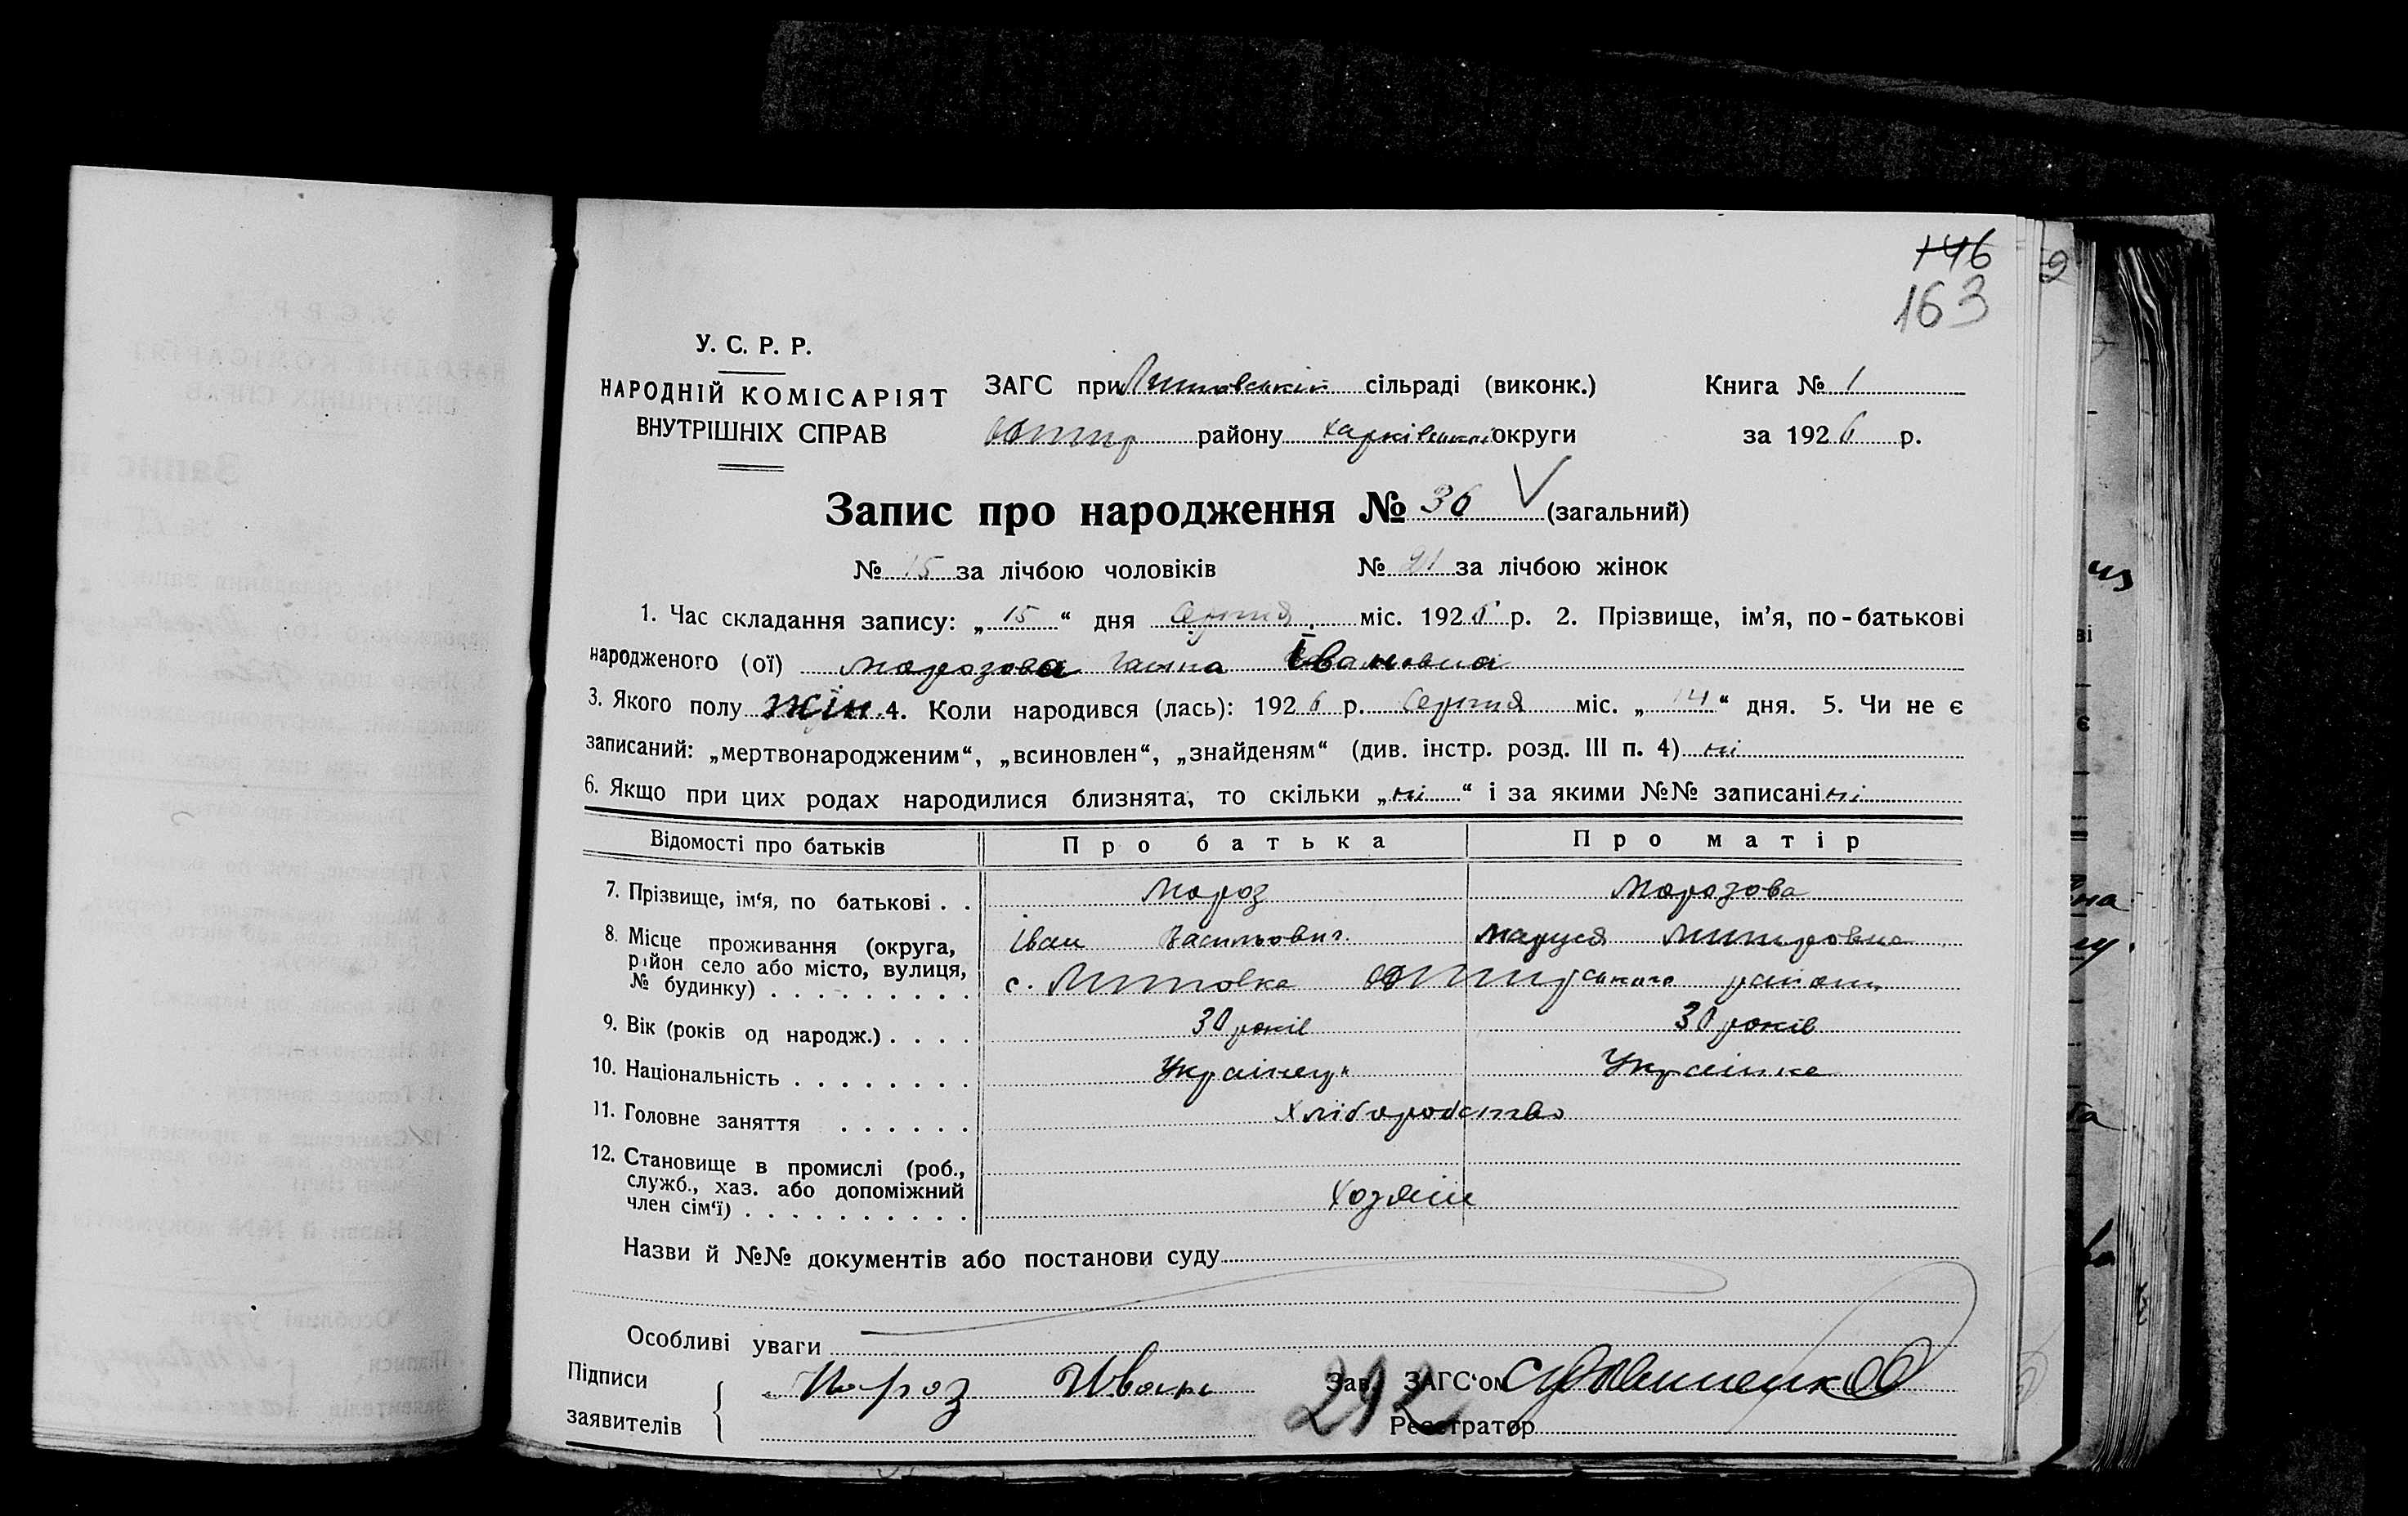 146
163
У. С. Р. Р.
НАРОДНІЙ КОМІСАРІЯТ
ВНУТРІШНІХ СПРАВ
ЗАГС при сільраді (виконк.)
району округи
Книга № 1
за 1926 р.
Запис про народження № 36 (загальний)
№ 15 за лічбою чоловіків № 21 за лічбою жінок
1. Час складання запису: „ 15 “ дня Серпня міс. 1926 р. 2. Прізвище, ім'я, по-батькові
народженого (ої) Морозова Ганна Івановна
3. Якого полу жін. 4. Коли народився (лась): 1926 р. Серпня міс. „ 14 “ дня. 5. Чи не є
записаний: „мертвонародженим“, „всиновлен“, „знайденям“ (див. інстр. розд. III п. 4) ні
6. Якщо при цих родах народилися близнята, то скільки „ ні “ і за якими №№ записані ні
Відомості про батьків Про батька Про матір
7. Прізвище, ім'я, по батькові . . Мороз Морозова
Іван Васильович Маруся
8. Місце проживання (округа,
район село або місто, вулиця,
№ будинку) . . . . . . . . . с. района
9. Вік (років од народж.) . . . . 30 років 30 років
10. Національність . . . . . . . . Українець Українка
11. Головне заняття . . . . . . Хліборобство
12. Становище в промислі (роб.,
служб., хаз. або допоміжний
член сім'ї) . . . . . . . . . . Хозяїн
Назви й №№ документів або постанови суду
Особливі уваги
Підписи
заявителів
Мороз Иван
Зав. ЗАГС'ом
292
Реєстратор